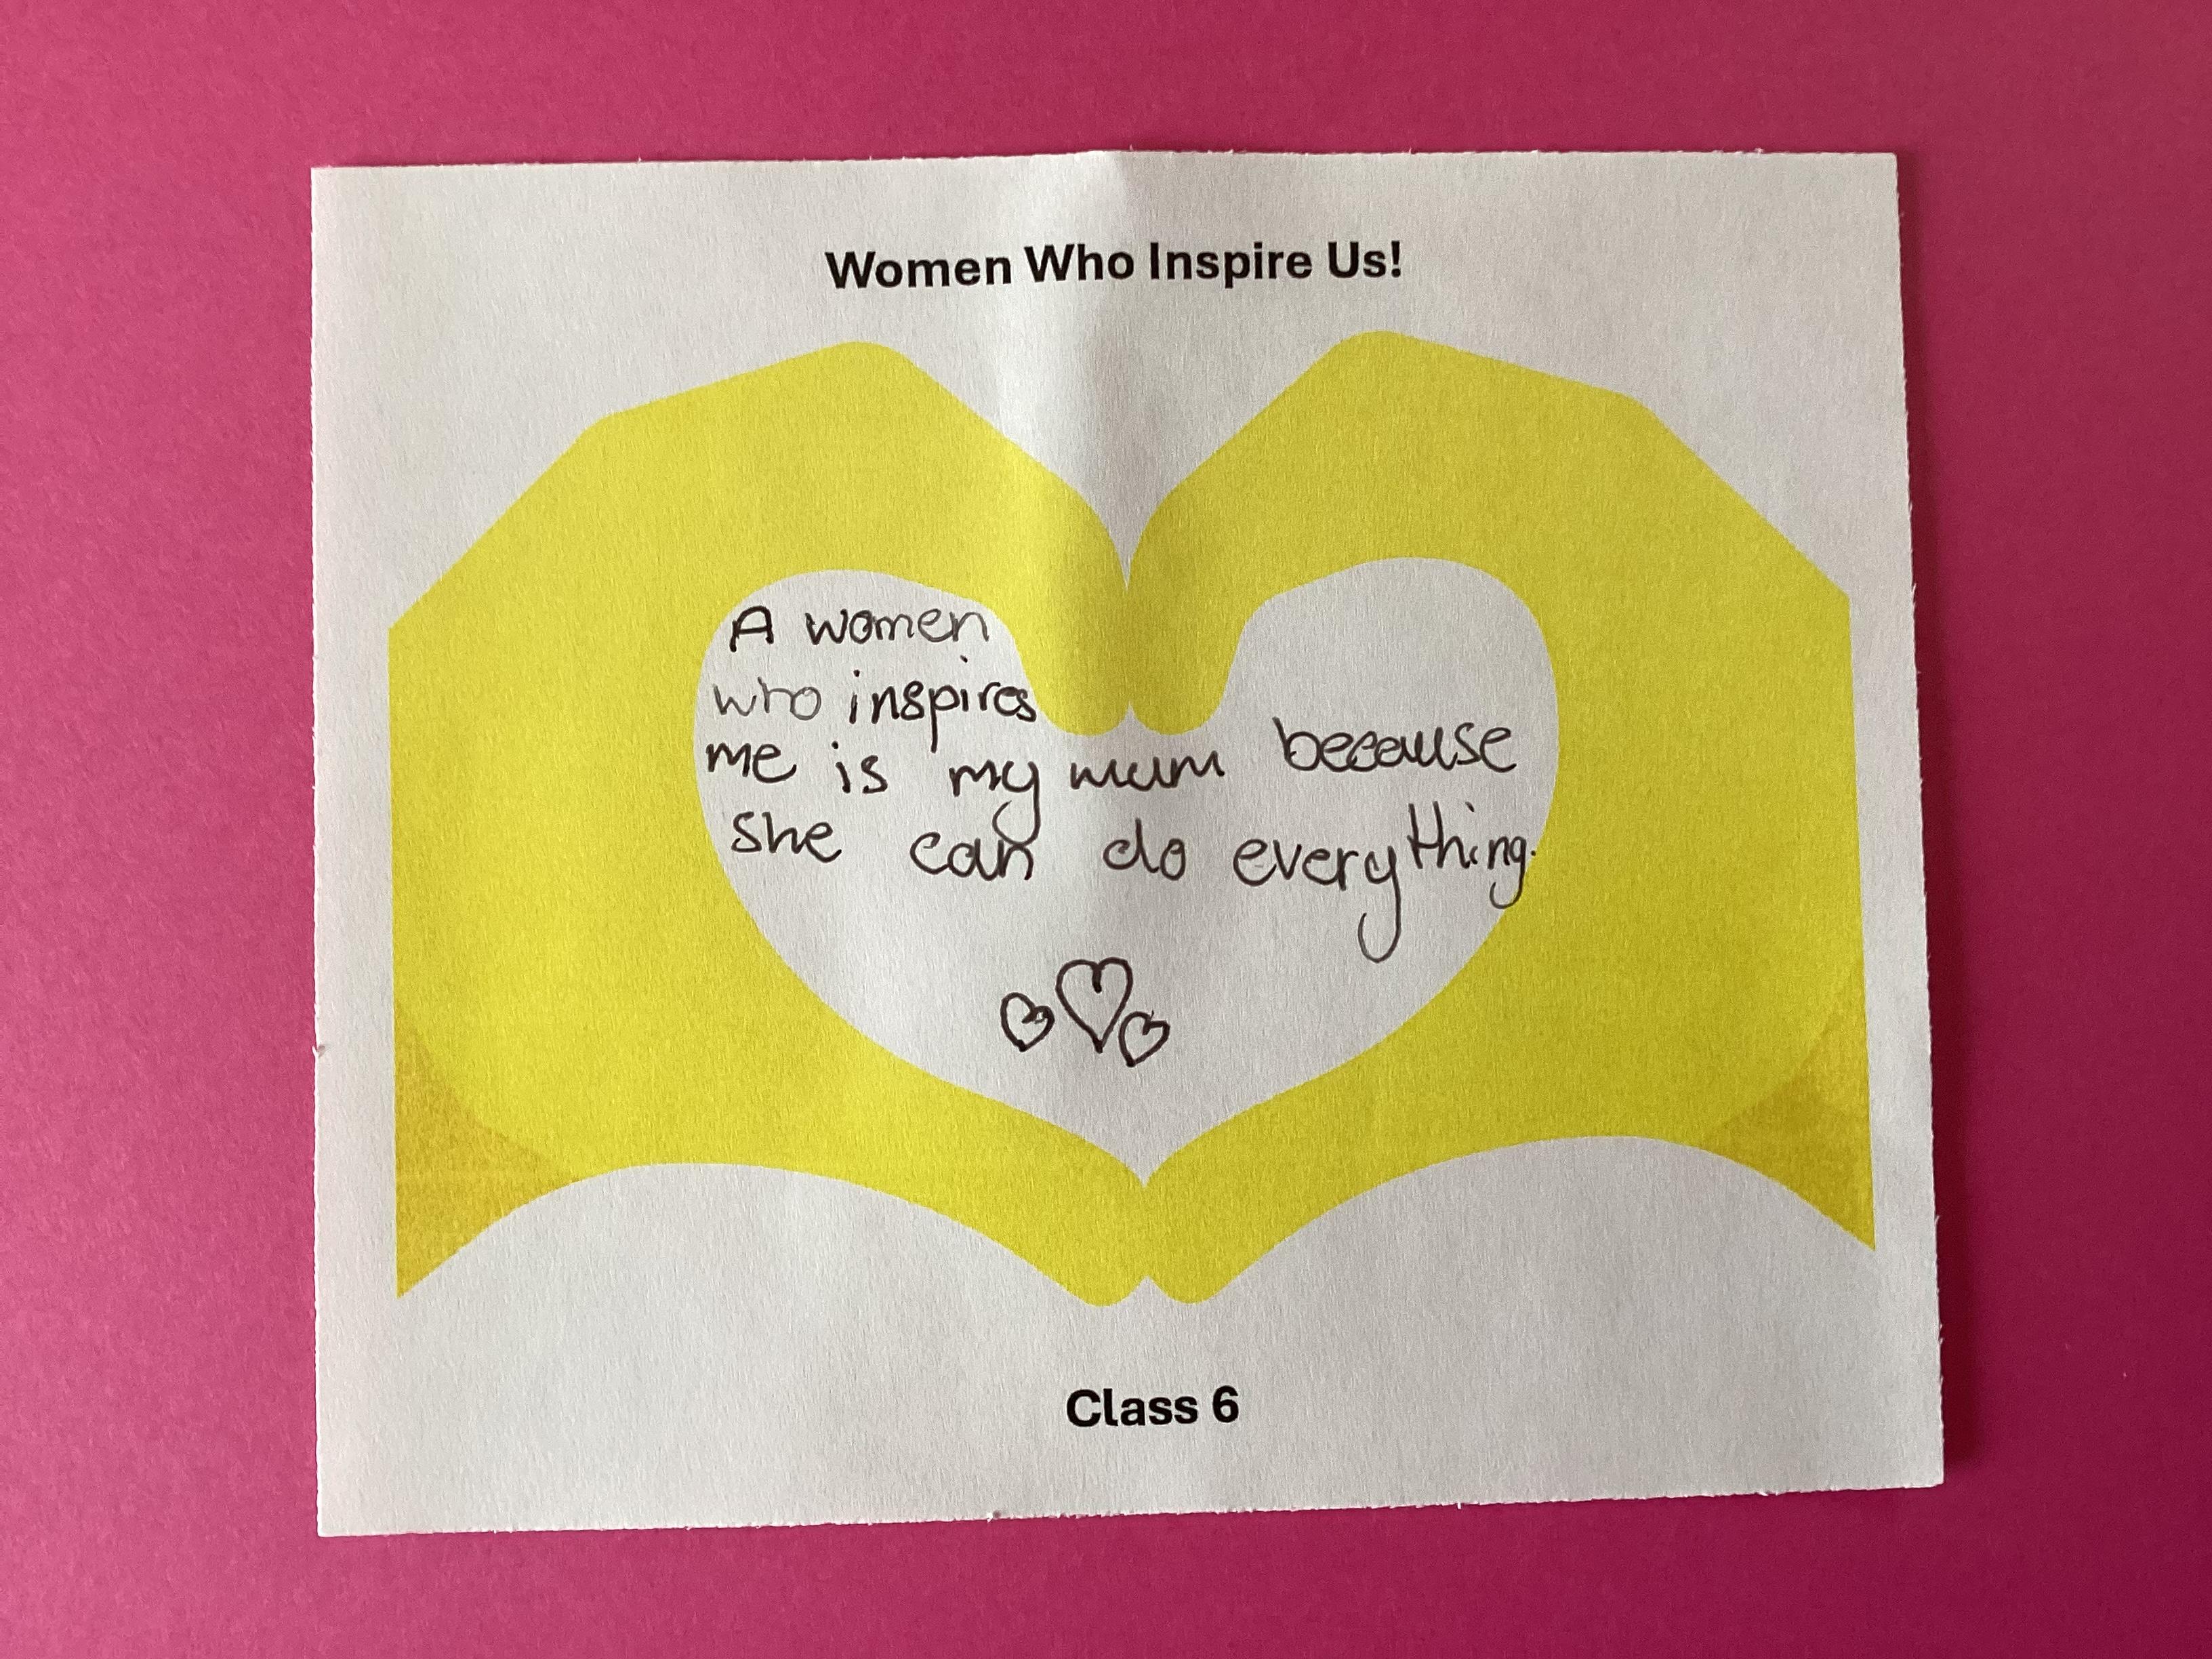 Women Who Inspire Us!
A women
who inspires
me is my mum because
she can do everything.
Class 6